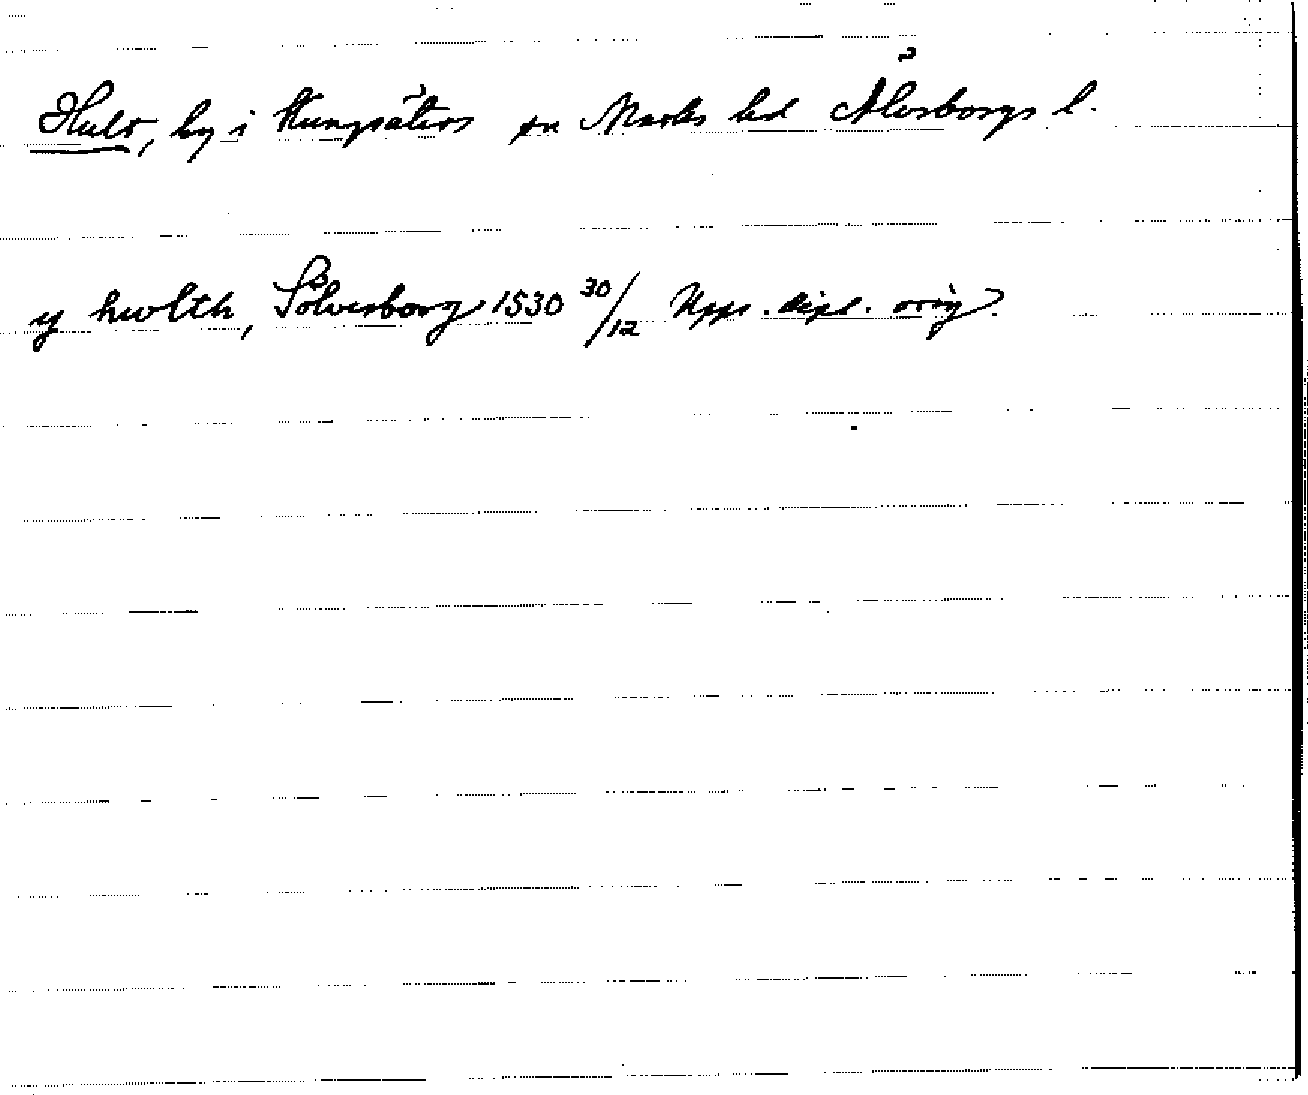 Hult, by i Kungsäters sn Marks hd Älvsborgs l.
y hwlth, Sölvesborg 1530 30/12 Upps. dipl. orig.